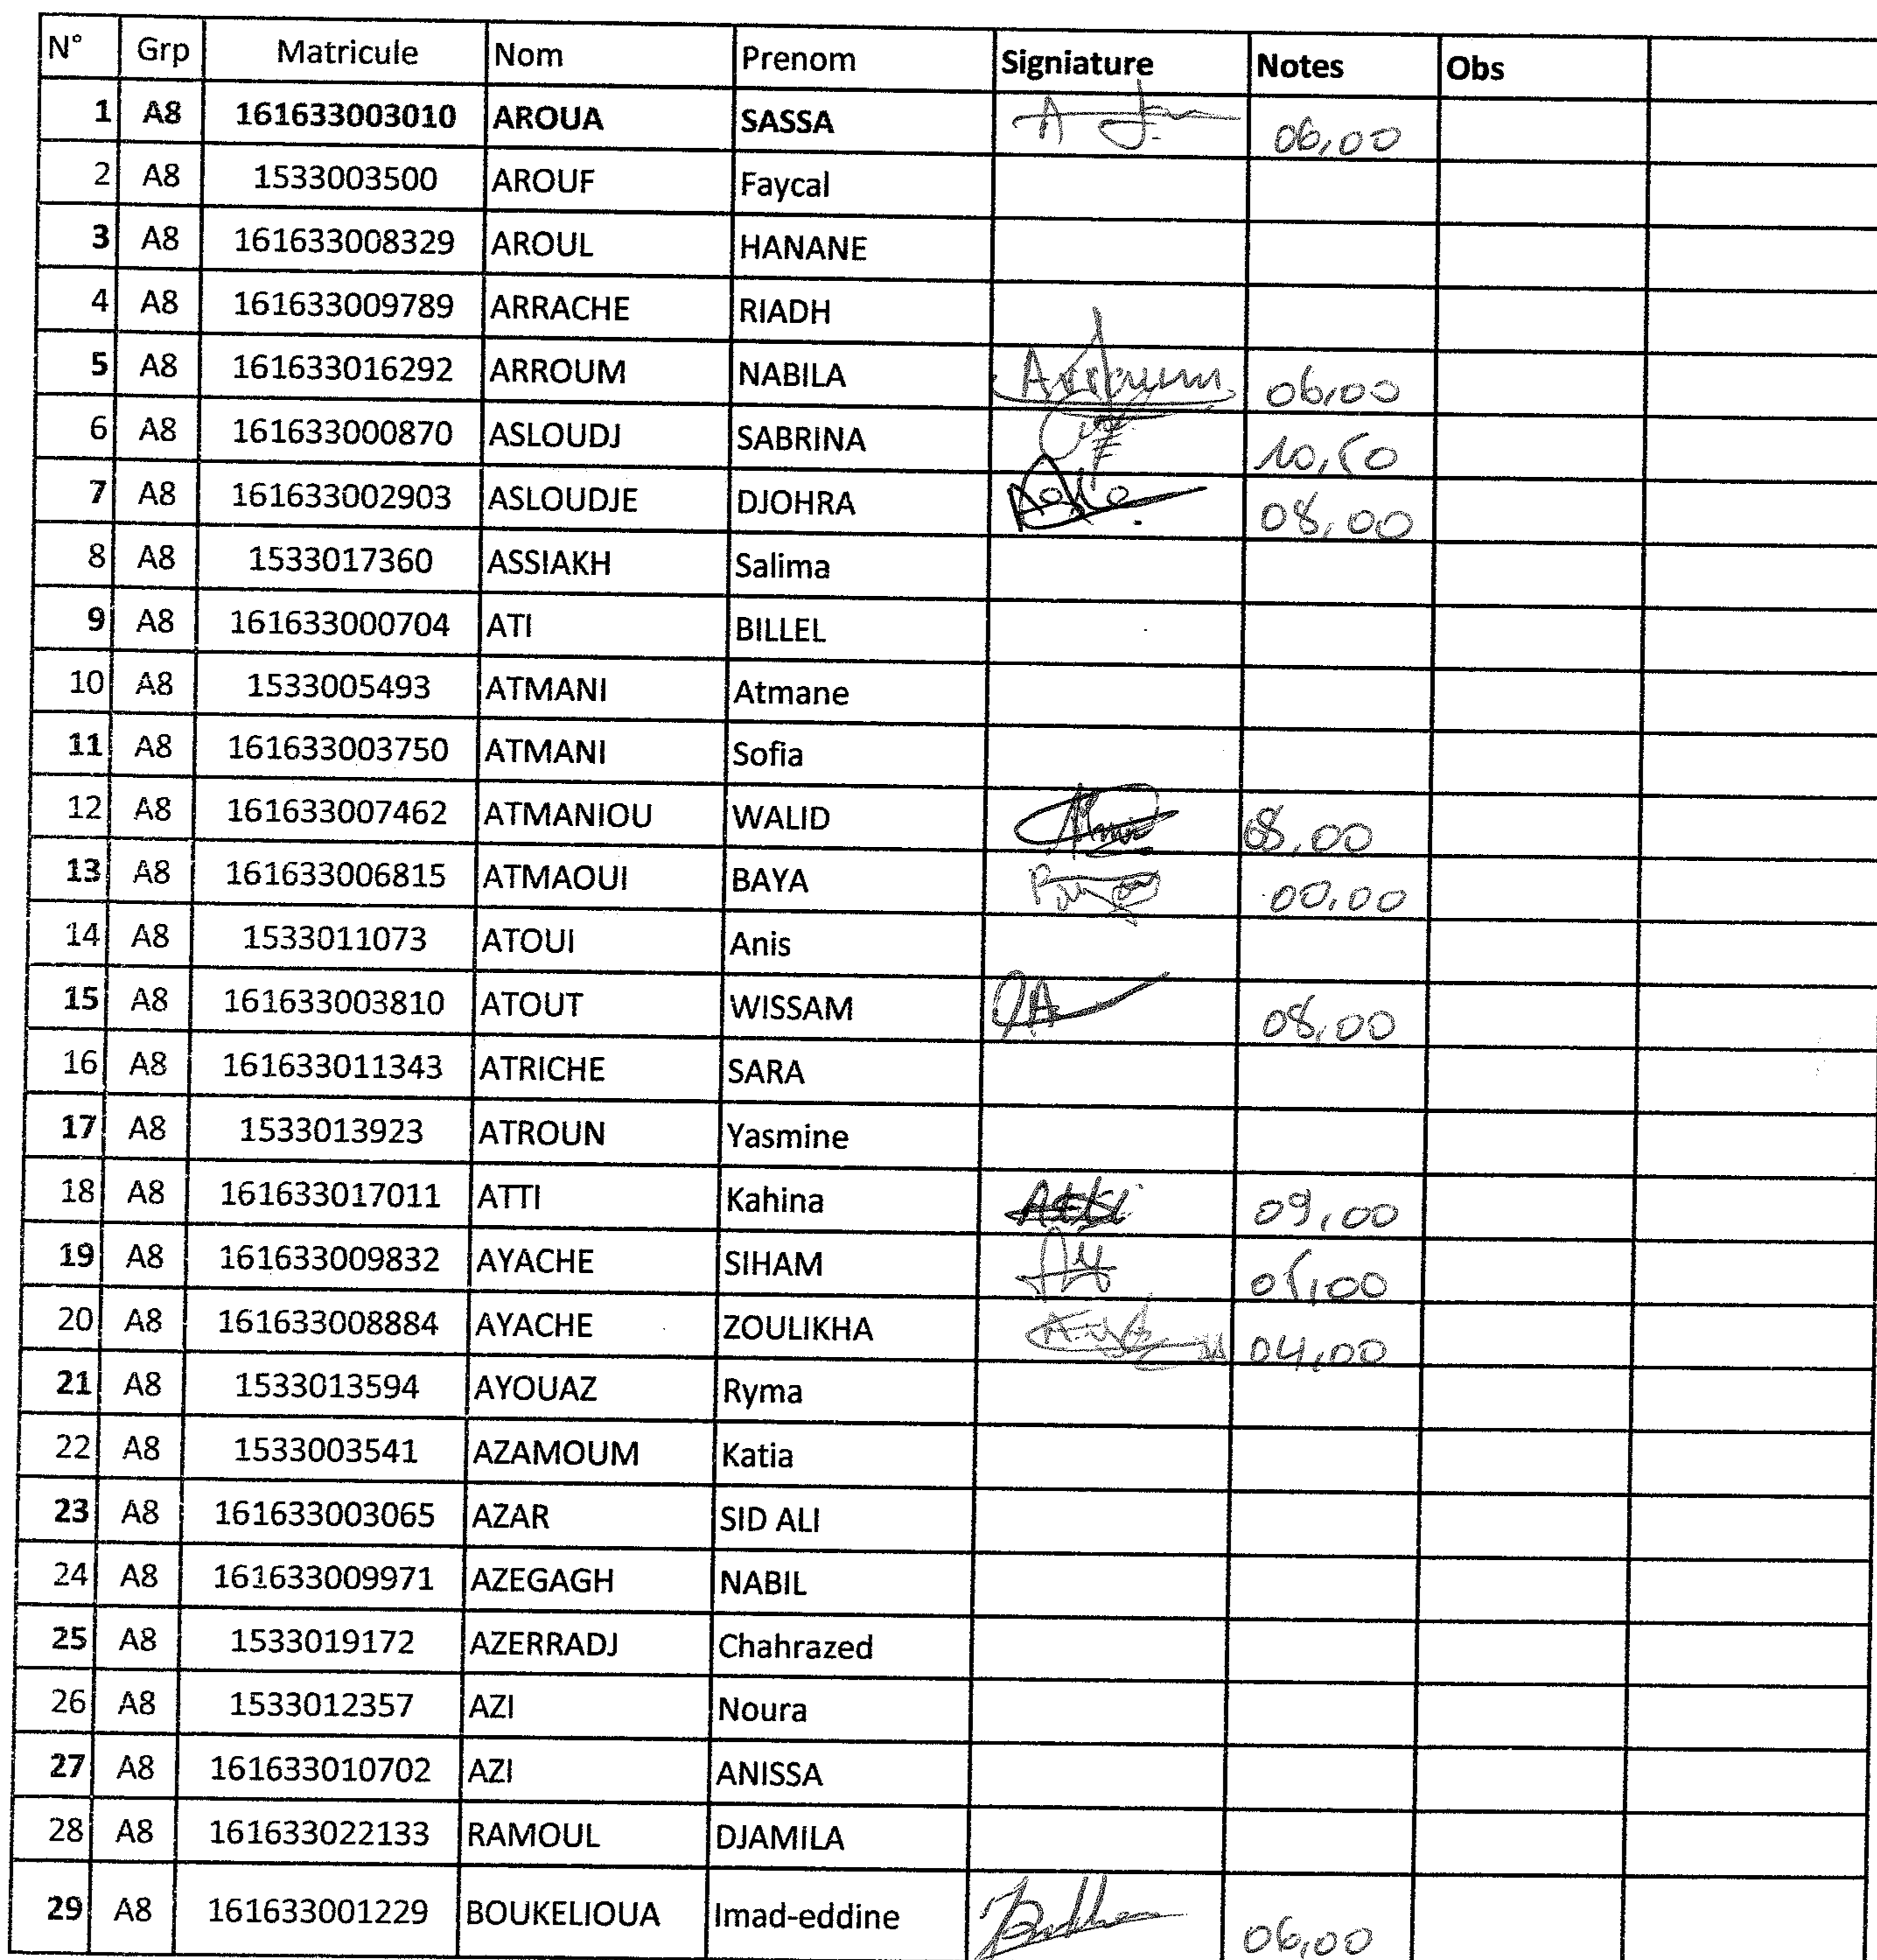 N° Grp Matricule Nom Prenom Signiature Notes Obs
1 A8 161633003010 AROUA SASSA 06,00
2 A8 1533003500 AROUF Faycal
3 A8 161633008329 AROUL HANANE
4 A8 161633009789 ARRACHE RIADH
5 A8 161633016292 ARROUM NABILA Arroum 06,00
6 A8 161633000870 ASLOUDJ SABRINA 10,50
7 A8 161633002903 ASLOUDJE DJOHRA 08,00
8 A8 1533017360 ASSIAKH Salima
9 A8 161633000704 ATI BILLEL
10 A8 1533005493 ATMANI Atmane
11 A8 161633003750 ATMANI Sofia
12 A8 161633007462 ATMANIOU WALID 08,00
13 A8 161633006815 ATMAOUI BAYA 00,00
14 A8 1533011073 ATOUI Anis
15 A8 161633003810 ATOUT WISSAM 08,00
16 A8 161633011343 ATRICHE SARA
17 A8 1533013923 ATROUN Yasmine
18 A8 161633017011 ATTI Kahina 09,00
19 A8 161633009832 AYACHE SIHAM Ay 05,00
20 A8 161633008884 AYACHE ZOULIKHA 04,00
21 A8 1533013594 AYOUAZ Ryma
22 A8 1533003541 AZAMOUM Katia
23 A8 161633003065 AZAR SID ALI
24 A8 161633009971 AZEGAGH NABIL
25 A8 1533019172 AZERRADJ Chahrazed
26 A8 1533012357 AZI Noura
27 A8 161633010702 AZI ANISSA
28 A8 161633022133 RAMOUL DJAMILA
29 A8 161633001229 BOUKELIOUA Imad-eddine 06,00